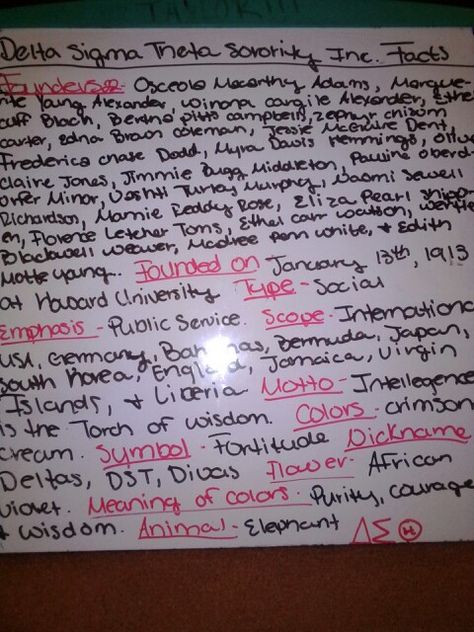 Delta Sigma Theta Sorority Inc. Facts
Founders Osceola Mccarthy Adams, Margue-
rite Young Alexander, Winona Cargile Alexander, Ethel
cuff Black, Bertha pitts campbell, zephyr chisom
carter, Edna Brown coleman, Jessie McGuire Dent,
Frederica chase Dodd, Myra Davis Hemmings, Olive
Claire Jones, Jimmie Bugg Middleton, Pauline Oberdo
orfer Minor, Vashti Turley Murphy, Naomi Sewell
Richardson, Mamie Reddy Rose, Eliza Pearl Shipp
en, Florence Letcher Toms, Ethel Carr Watson, Wertie
Blackwell Weaver, Madree Penn White, + Edith
Motte Young. Founded on January 13th, 1913
at Howard University Type - Social
Emphasis - Public Service. Scope - Internationa
USA, Germany, Bahamas, Bermuda, Japan,
South Korea, England, Jamaica, Virgin
Islands, + Liberia Motto - Intellegence
is the Torch of wisdom. Colors - crimson
cream. Symbol - Fortitude Nickname
Deltas, DST, Divas Flower - African
Violet. Meaning of colors - Purity, courage
+ wisdom. Animal - Elephant ΔΣΘ